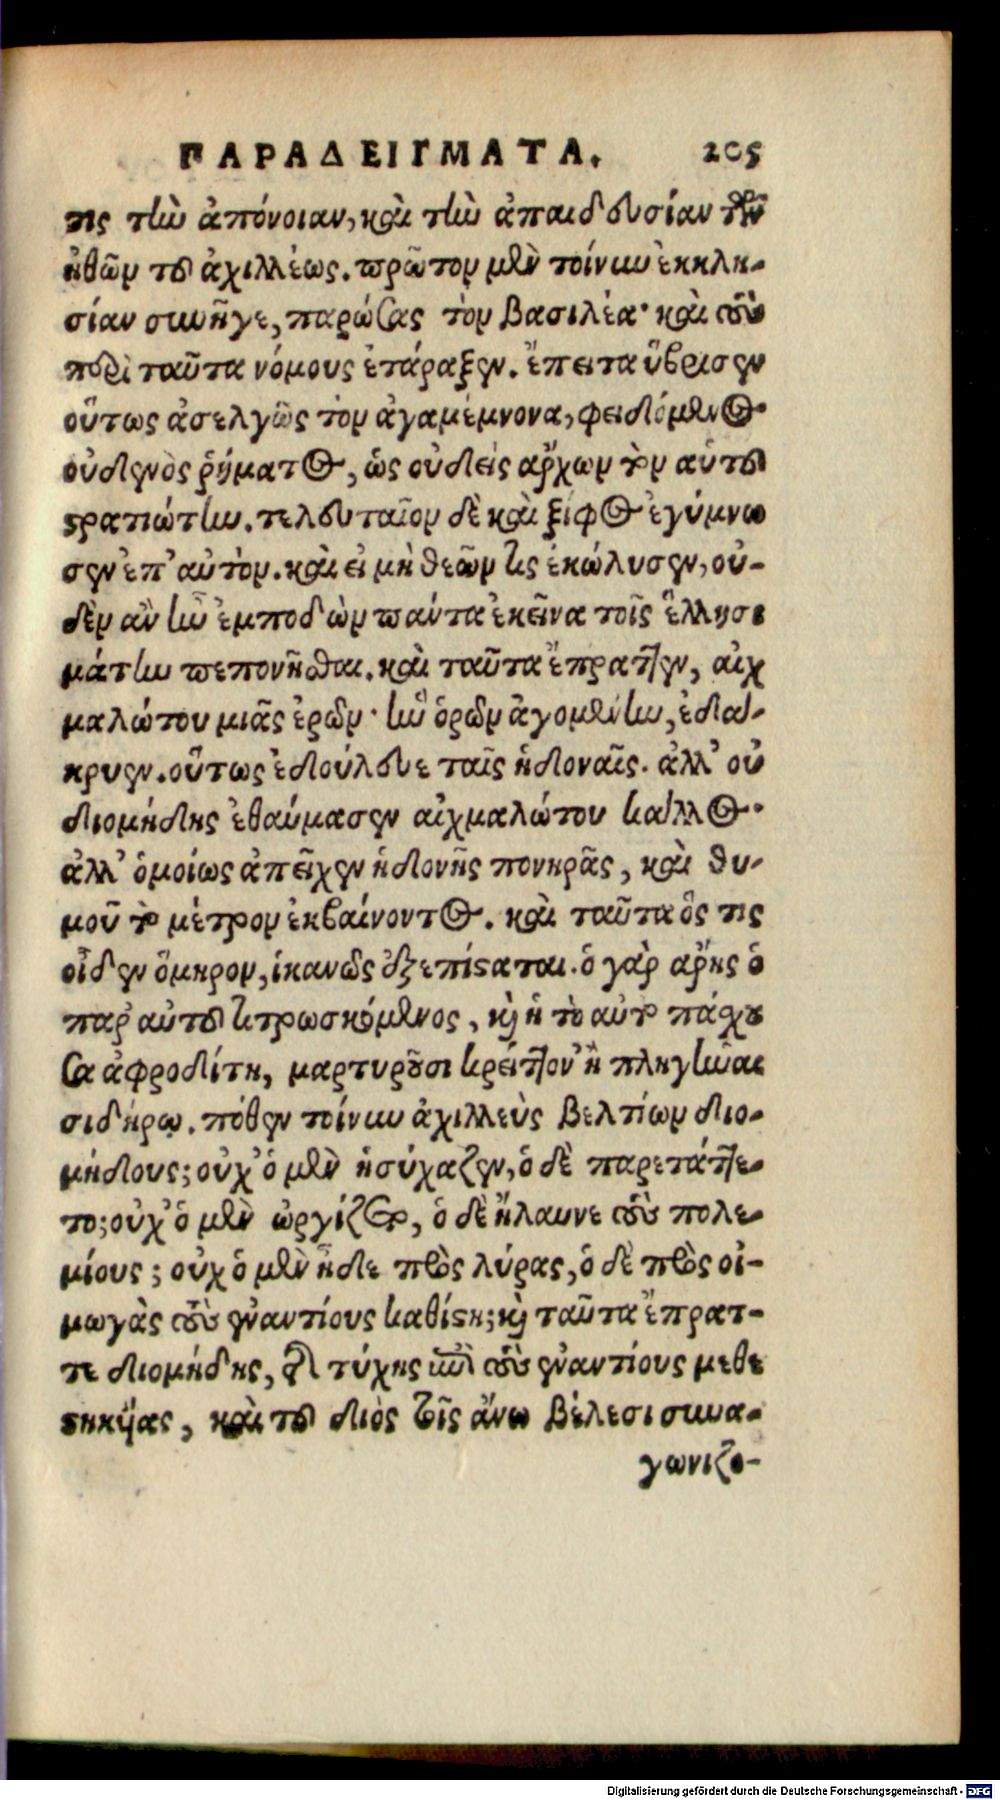 ΠΑΡΑΔΕΙΓΜΑΤΑ. 205
τις τὴν ἀπόνοιαν, καὶ τὴν ἀπαιδευσίαν τῶν
ἠθῶν τοῦ ἀχιλλέως. πρῶτον μὲν τοίνυν ἐκκλη-
σίαν συνῆγε, παρώσας τὸν βασιλέα· καὶ τοὺς
περὶ ταῦτα νόμους ἐτάραξεν. ἔπειτα ὕβρισεν
οὕτως ἀσελγῶς τὸν ἀγαμέμνονα, φειδόμενος
οὐδενὸς ῥήματος, ὡς οὐδεὶς ἄρχων τὸν αὑτοῦ
στρατιώτην. τελευταῖον δὲ καὶ ξίφος ἐγύμνω
σεν ἐπ' αὐτὸν. καὶ εἰ μὴ θεῶν τις ἐκώλυσεν, οὐ-
δὲν ἂν ἦν ἐμποδὼν πάντα ἐκεῖνα τοῖς ἕλλησι
μάτην πεπονῆσθαι. καὶ ταῦτα ἔπραττεν, αἰχ
μαλώτου μιᾶς ἐρῶν· ἣν ὁρῶν ἀγομένην, ἐδά-
κρυεν. οὕτως ἐδούλευε ταῖς ἡδοναῖς. ἀλλ' οὐ
διομήδης ἐθαύμασεν αἰχμαλώτου κάλλος·
ἀλλ' ὁμοίως ἀπεῖχεν ἡδονῆς πονηρᾶς, καὶ θυ-
μοῦ τὸ μέτρον ἐκβαίνοντος. καὶ ταῦτα ὅς τις
οἶδεν ὅμηρον, ἱκανῶς ἐξεπίσταται. ὁ γὰρ ἄρης ὁ
παρ' αὐτοῦ τιτρωσκόμενος, καὶ ἡ τὸ αὐτὸ πάσχου
σα ἀφροδίτη, μαρτυροῦσι κρείττον' ἢ πληγῆναι
σιδήρῳ. πόθεν τοίνυν ἀχιλλεὺς βελτίων διο-
μήδους; οὐχ' ὁ μὲν ἡσύχαζεν, ὁ δὲ παρετάττε-
το; οὐχ' ὁ μὲν ὠργίζετο, ὁ δὲ ἤλαυνε τοὺς πολε-
μίους; οὐχ ὁ μὲν ᾖδε πρὸς λύρας, ὁ δὲ πρὸς οἰ-
μωγὰς τοὺς ἐναντίους καθίστη; καὶ ταῦτα ἔπρατ-
τε διομήδης, τῆς τύχης ἐπὶ τοὺς ἐναντίους μεθε
στηκυίας, καὶ τοῦ διὸς τοῖς ἄνω βέλεσι συνα-
γωνιζο-
Digitalisierung gefördert durch die Deutsche Forschungsgemeinschaft - DFG